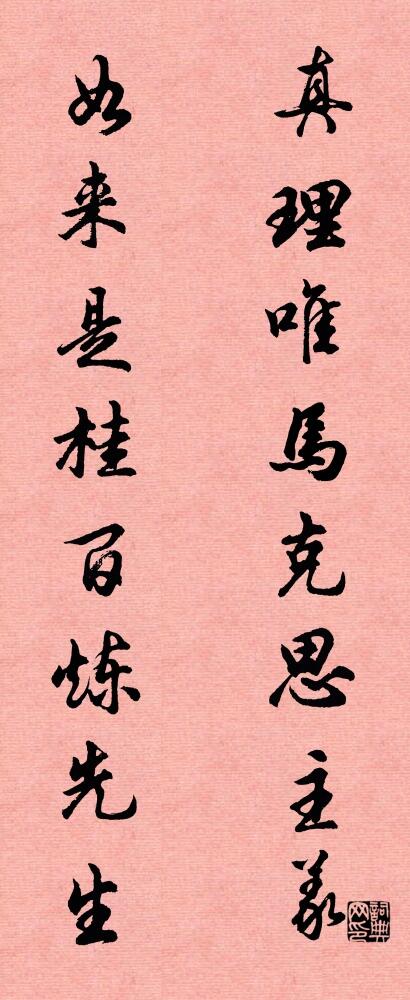 真理唯馬克思主義
如来是桂百炼先生
詞典网印